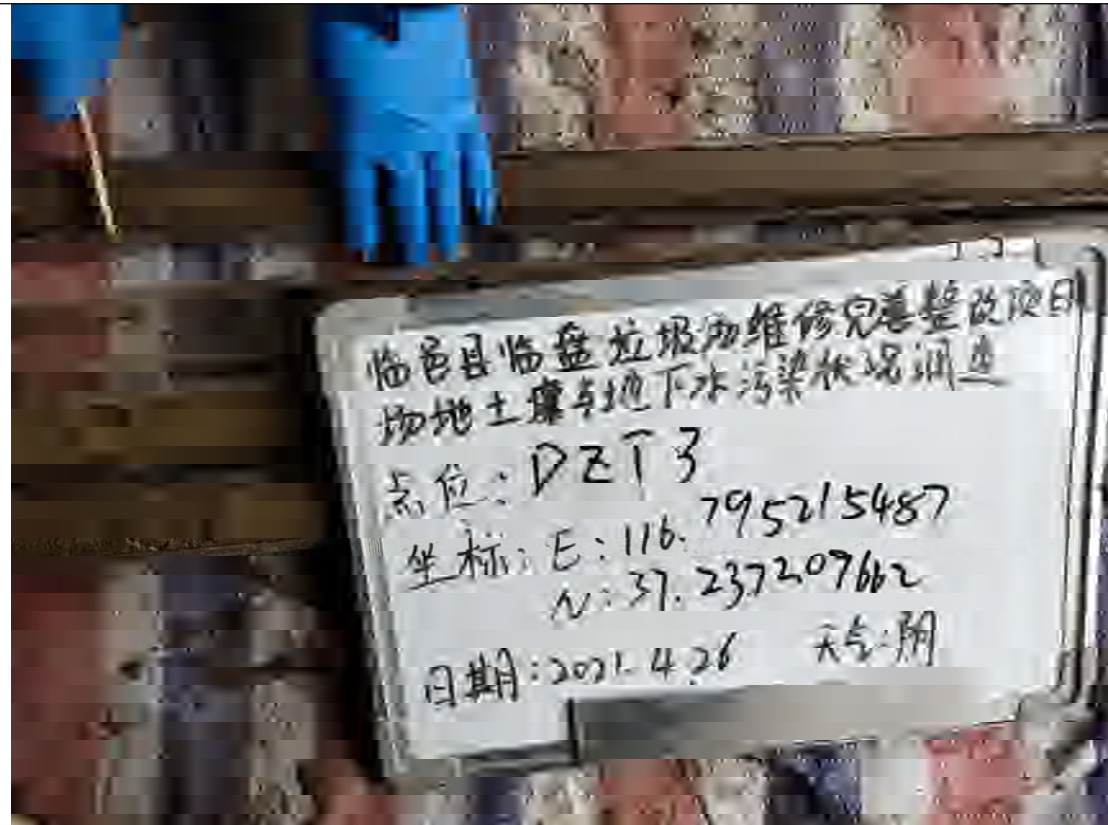 临邑县临盘垃圾场维修完善整改项目
场地土壤与地下水污染状况调查
点位:DZT3
坐标:E:116.795215487
N:37.237207662
日期:2021.4.26 天气:阴